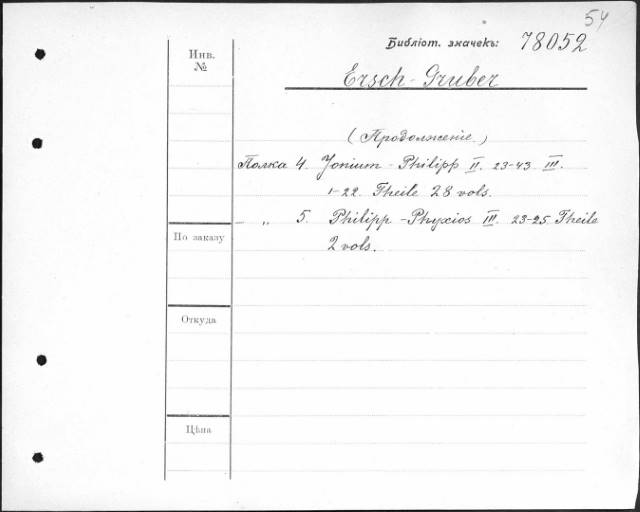 54
Библіот. значекъ: 78052
Инв. №
Ersch-Gruber
(Продолженіе)
Полка 4. Jonium - Philipp II. 23-43. III.
1-22. Theile 28 vols.
— „ 5. Philipp - Phyxios III. 23-25 Theile
2 vols.
По заказу
Откуда
Цѣна